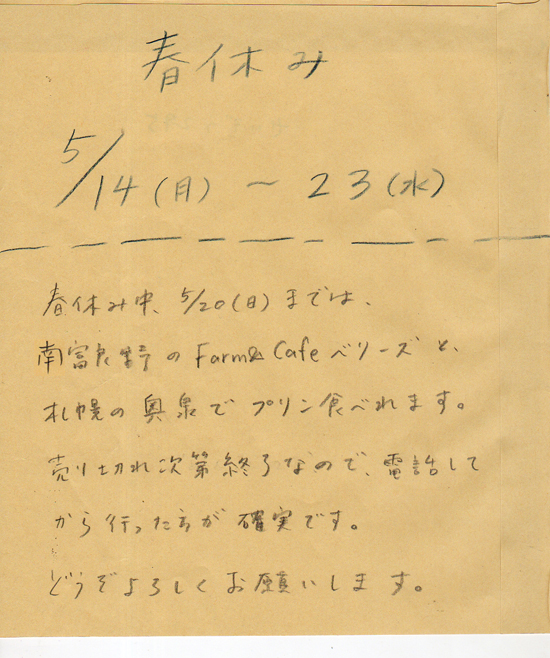 春休み
5/14(月)〜23(水)
春休み中、5/20(日)までは、
南富良野のFarm&Cafeベリーズと、
札幌の奥泉でプリン食べれます。
売り切れ次第終了なので、電話して
から行った方が確実です。
どうぞよろしくお願いします。